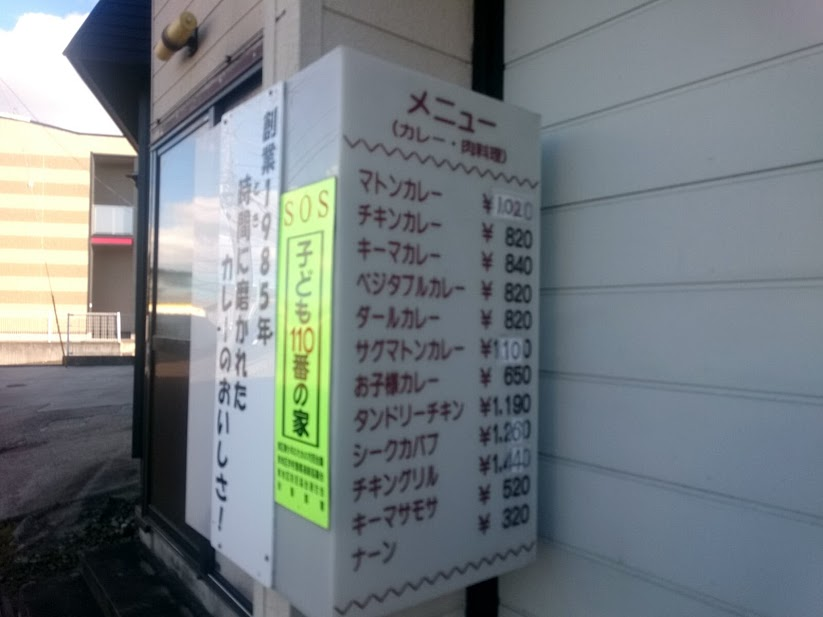 創業1985年
とき
時間に磨かれた
カレーのおいしさ!
SOS
子ども110番の家
メニュー
(カレー・肉料理)
マトンカレー ¥1020
チキンカレー ¥820
キーマカレー ¥840
ベジタブルカレー ¥820
ダールカレー ¥820
サグマトンカレー ¥1100
お子様カレー ¥650
タンドリーチキン ¥1.190
シークカバブ ¥1.260
チキングリル ¥1.440
キーマサモサ ¥520
ナーン ¥320